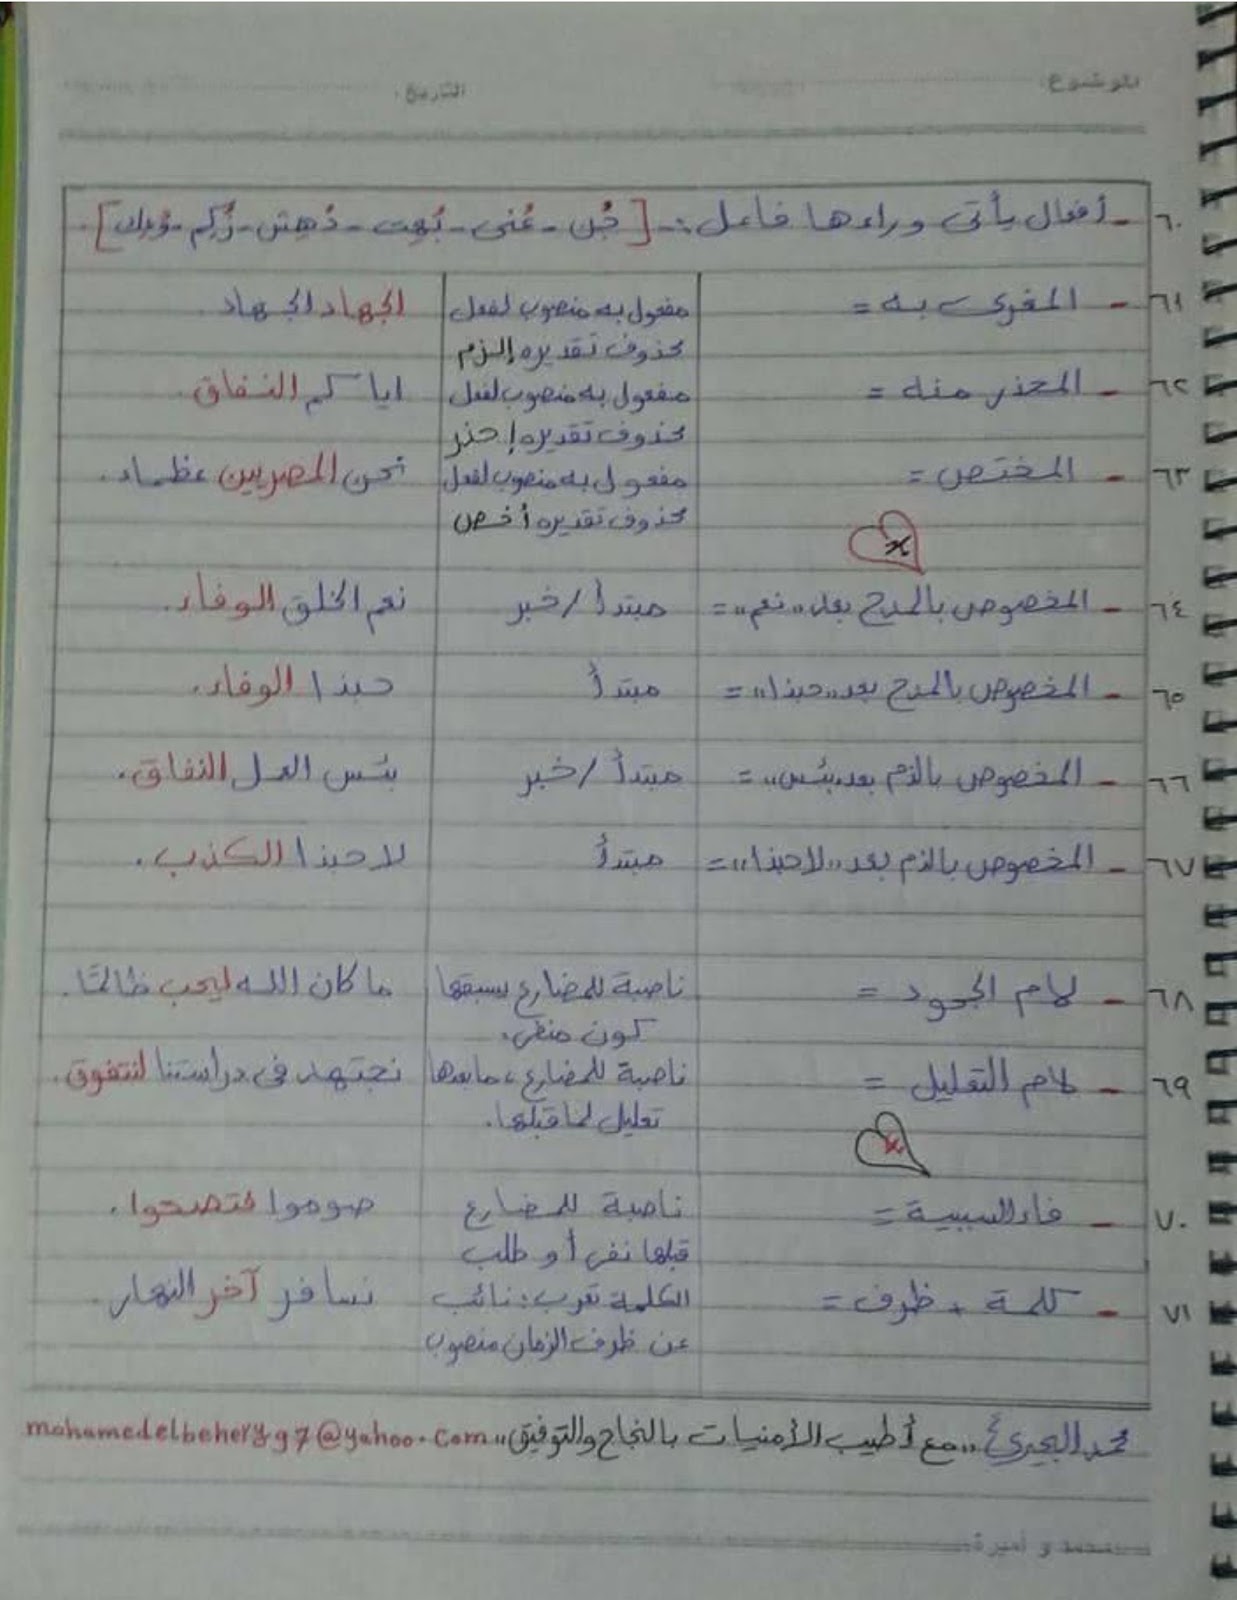 الموضوع:
التاريخ:
٦٠ - أفعال يأتى وراءها فاعل :- [جُن - عُنى - بُهت - دُهش - زُكم - وُلد].
٦١ - المغرى به = مفعول به منصوب لفعل الجهاد الجهاد.
محذوف تقديره إلزم
٦٢ - المحذر منه = مفعول به منصوب لفعل اياكم النفاق.
محذوف تقديره إحذر
٦٣ - المختص = مفعول به منصوب لفعل نحن المصريين عظماء.
محذوف تقديره أخص
٦٤ - المخصوص بالمدح بعد "نعم" = مبتدأ/خبر نعم الخلق الوفاء.
٦٥ - المخصوص بالمدح بعد "حبذا" = مبتدأ حبذا الوفاء.
٦٦ - المخصوص بالذم بعد "بئس" = مبتدأ/خبر بئس العمل النفاق.
٦٧ - المخصوص بالذم بعد "لاحبذا" = مبتدأ لا حبذا الكذب.
٦٨ - لام الجحود = ناصبة للمضارع يسبقها ما كان الله ليحب ظالمًا.
كون منفى.
٦٩ - لام التعليل = ناصبة للمضارع، مابعدها نجتهد فى دراستنا لنتفوق.
تعليل لما قبلها.
٧٠ - فاء السببية = ناصبة للمضارع صوموا فتصحوا.
قبلها نفى أو طلب
٧١ - كلمة + ظرف = الكلمة تعرب: نائب نسافر آخر النهار.
عن ظرف الزمان منصوب
محمد البحيرى "مع أطيب الأمنيات بالنجاح والتوفيق" mohamedelbehery97@yahoo.com
محمد و أميرة